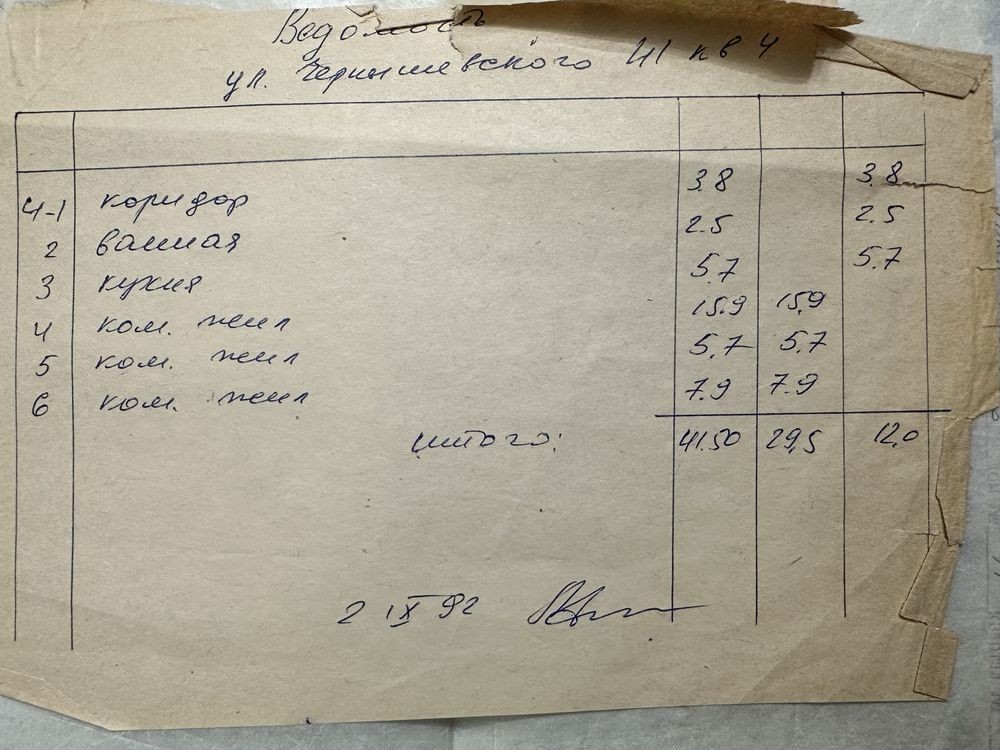 Ведомость
ул. Чернышевского 41 кв 4
4-1 коридор 3.8 3.8
2 ванная 2.5 2.5
3 кухня 5.7 5.7
4 ком. жил 15.9 15.9
5 ком. жил 5.7 5.7
6 ком. жил 7.9 7.9
итого: 41.50 29,5 12,0
2 IX 92